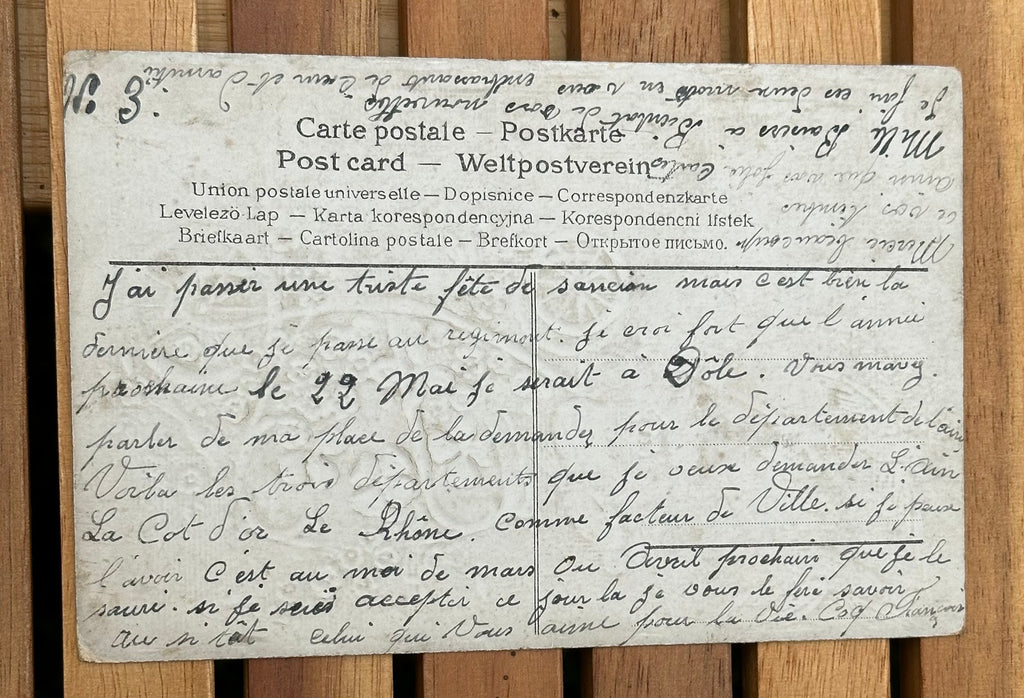 N: 3.
Carte postale — Postkarte
Post card — Weltpostverein
Union postale universelle — Dopisnice — Correspondenzkarte
Levelező Lap — Karta korespondencyjna — Korespondencni listek
Briefkaart — Cartolina postale — Brefkort — Открытое письмо.
J'ai passer une triste fête de sancion mais c'est bien la
derniere que je passe au regiment. je croi fort que l'année
prochaine le 22 Mai je serait à Dôle. Vous mavez
parler de ma place de la demandez pour le département de l'ain
Voila les trois départements que je veux demander L'ain
La Cot d'or Le Rhône. Comme facteur de Ville. si je peux
l'avoir c'est au moi de mars ou Avril prochain que je le
saurè. si je serès accepter ce jour la je vous le fere savoir
au si tât celui qui Vous aime pour la Vie. Coq François
Merci beaucoup
de vos timbres
ainsi que vos jolie Cartes
Mille Baisers a Bientot de vos nouvelles
Je fini ces deux mots en vous embrassant de loin et d'amitié